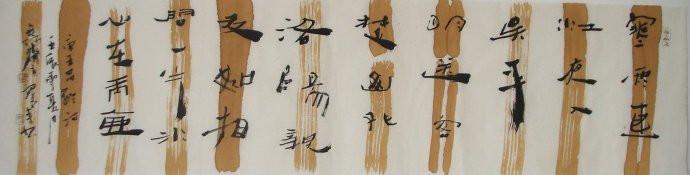 寒雨連
江夜入
吳平
明送客
楚山孤
洛陽親
友如相
問一片冰
心在玉壺
唐王昌齡詩
壬辰